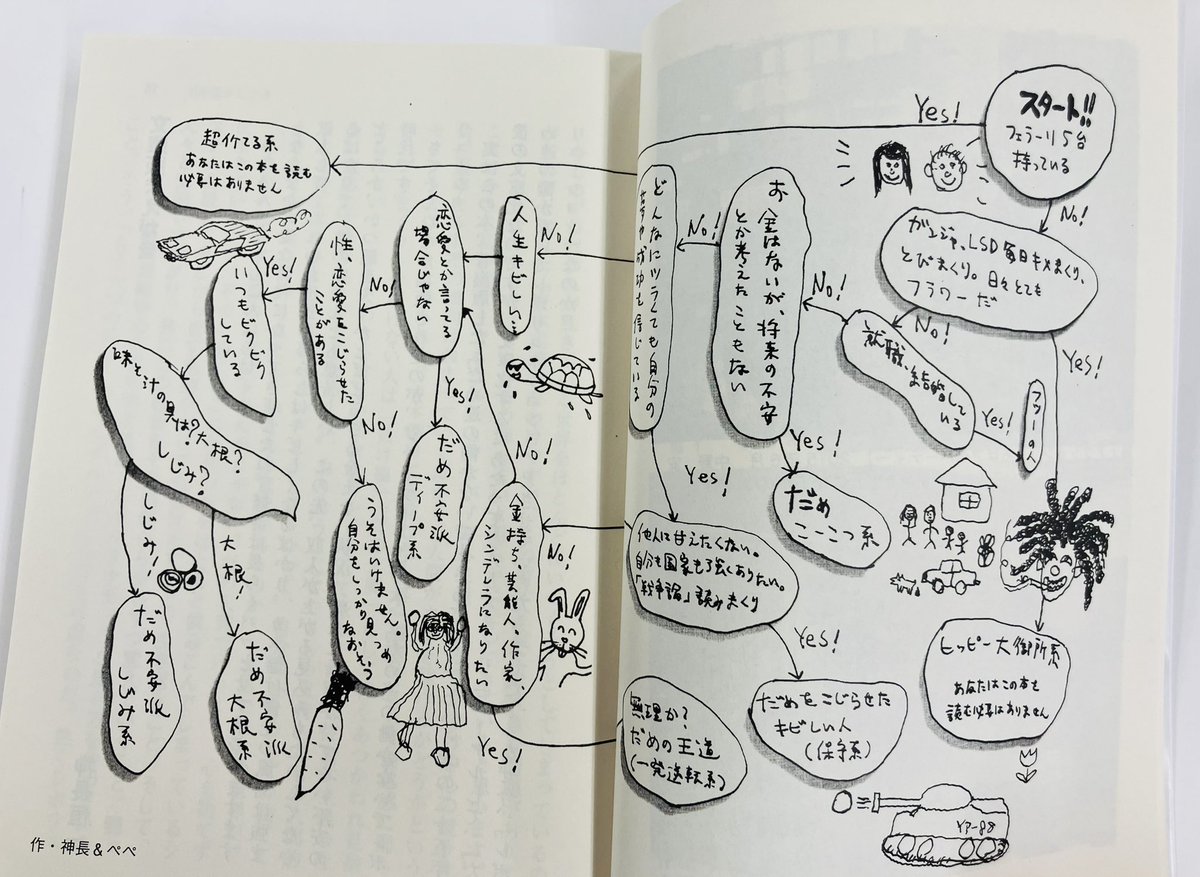 スタート!!
フェラーリ5台
持っている
Yes!
No!
超イケてる系
あなたはこの本を読む
必要はありません
ガンジャ、LSD毎日キメまくり、
とびまくり。日々とても
フラワーだ
No!
Yes!
就職、結婚している
Yes!
フツーの人
No!
お金はないが、将来の不安
とか考えたこともない
Yes!
だめ
こーこつ系
No!
どんなにツラくても自分の
夢や成功を信じている
Yes!
No!
ヒッピー大御所系
あなたはこの本も
読む必要はありません
他人に甘えたくない。
自分も国家も強くありたい。
「戦争論」読みまくり
Yes!
だめをこじらせた
キビしい人
(保守系)
No!
金持ち、芸能人、作家、
シンデレラになりたい
Yes!
無理か?
だめの王道
(一発逆転系)
No!
人生キビしい…
恋愛とか言ってる
場合じゃない
Yes!
だめ不安派
ディープ系
No!
性、恋愛をこじらせた
ことがある
No!
うそはいけません。
自分をしっかり見つめ
なおそう
Yes!
いつもビクビク
している
味そ汁の具は?大根?
しじみ?
しじみ!
だめ不安派
しじみ系
大根!
だめ不安派
大根系
作・神長&ペペ